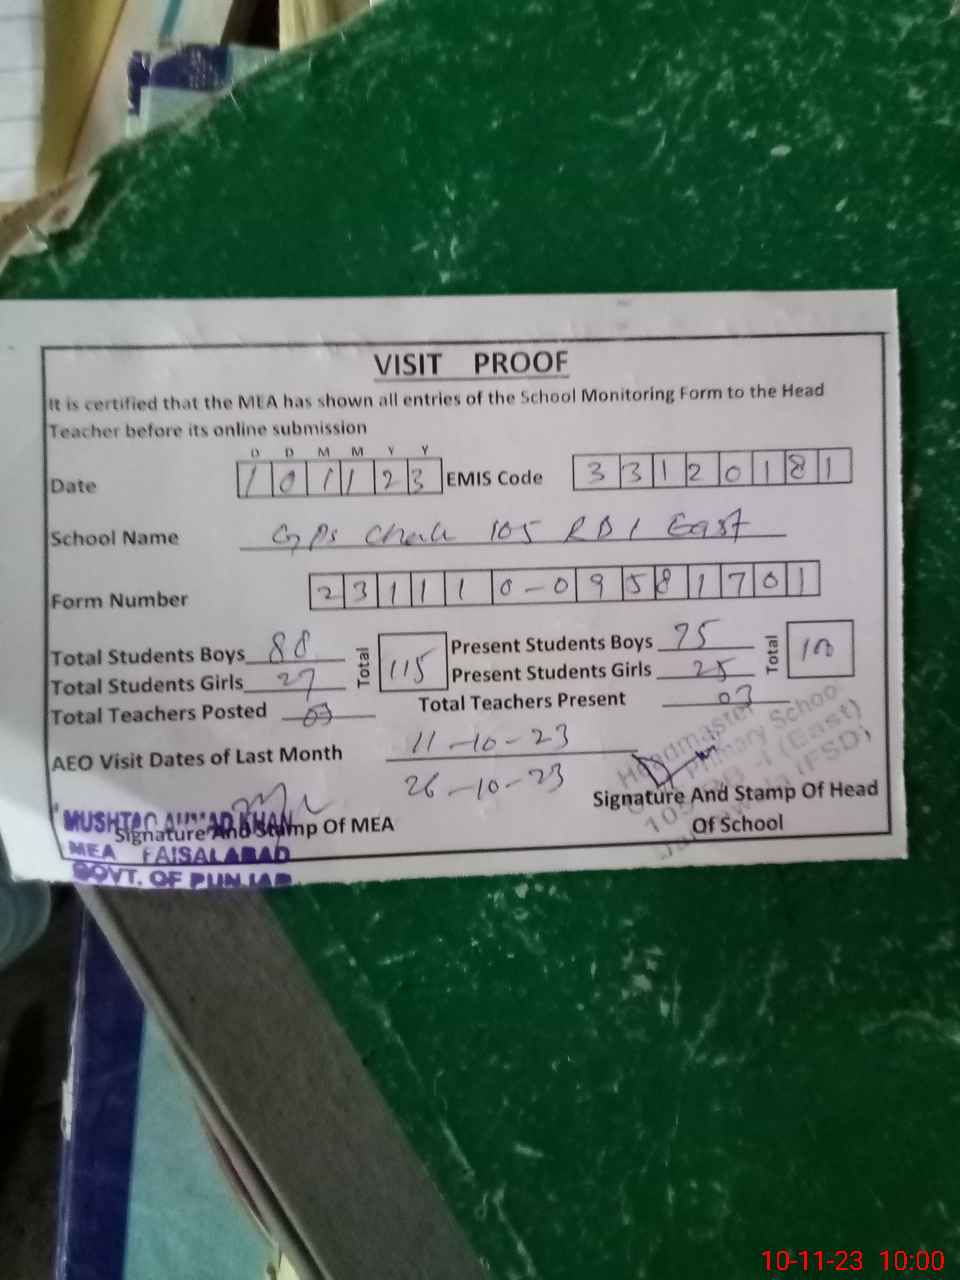 VISIT PROOF
It is certified that the MEA has shown all entries of the School Monitoring Form to the Head
Teacher before its online submission
D D M M Y Y
Date 1 0 1 1 2 3 EMIS Code 3 3 1 2 0 1 8 1
School Name GPS Chak 105 RB I East
Form Number 2 3 1 1 1 0 - 0 9 5 8 1 7 0 1
Total Students Boys 88 Total 115 Present Students Boys 75 Total 100
Total Students Girls 27 Present Students Girls 25
Total Teachers Posted 03 Total Teachers Present 03
AEO Visit Dates of Last Month 11-10-23
26-10-23
Headmaster
Primary School
(East)
(FSD)
Signature And Stamp Of Head
Of School
MUSHTAQ AHMAD KHAN
Signature And Stamp Of MEA
MEA FAISALABAD
GOVT. OF PUNJAB
10-11-23 10:00